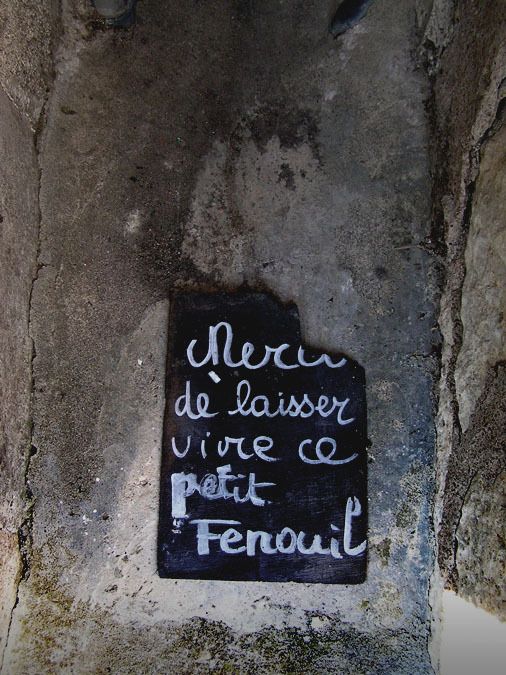 Merci
de laisser
vivre ce
petit
Fenouil